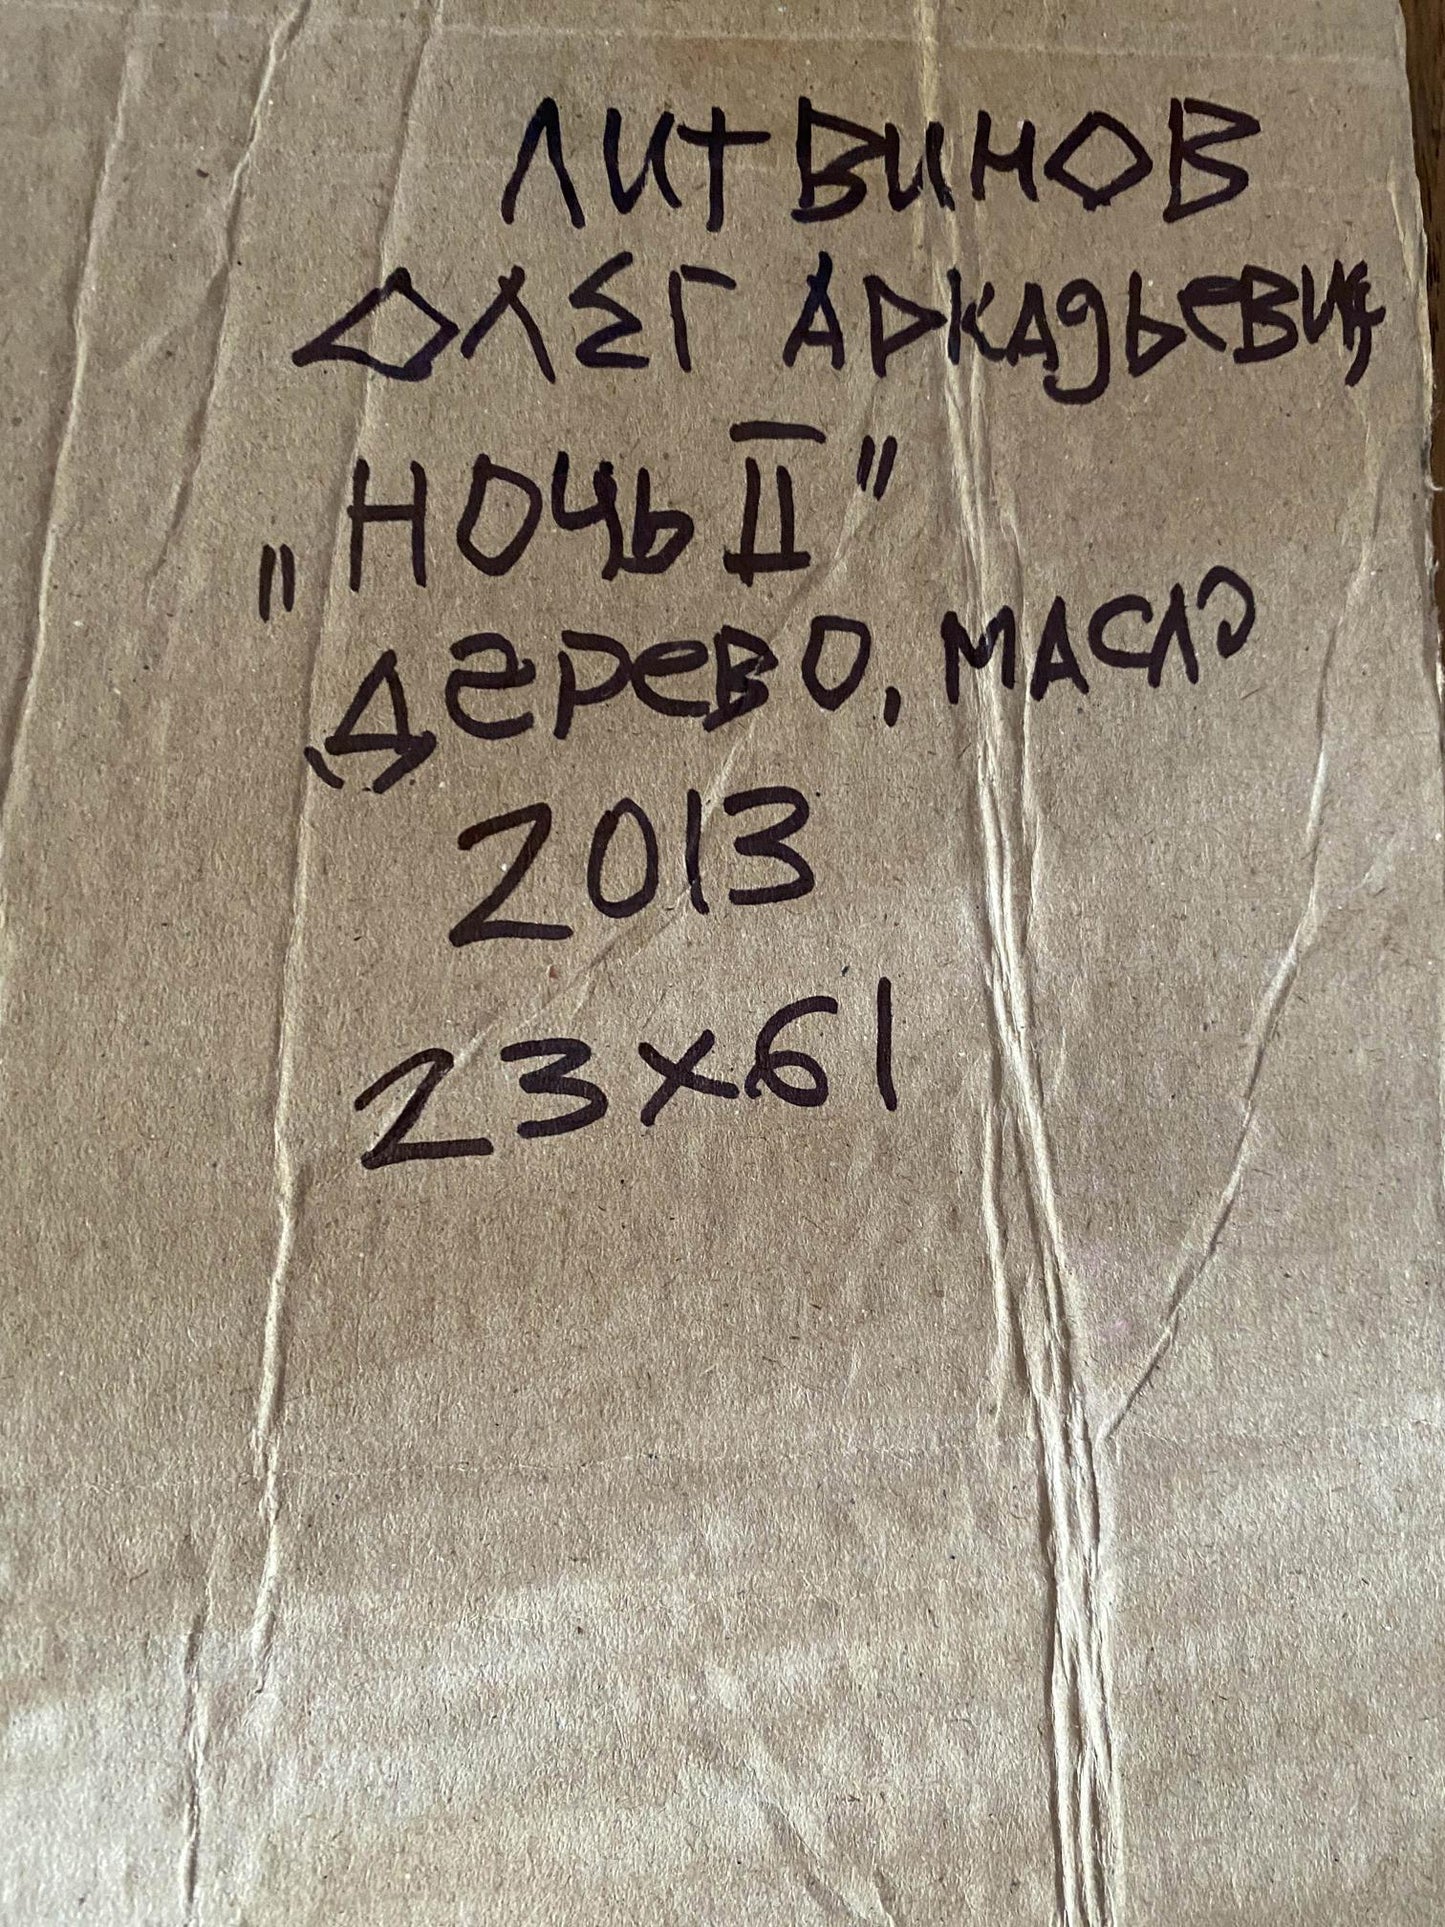 ЛИТВИНОВ
ОЛЕГ АРКАДЬЕВИЧ
„НОЧЬ II"
ДЕРЕВО, МАСЛО
2013
23х61